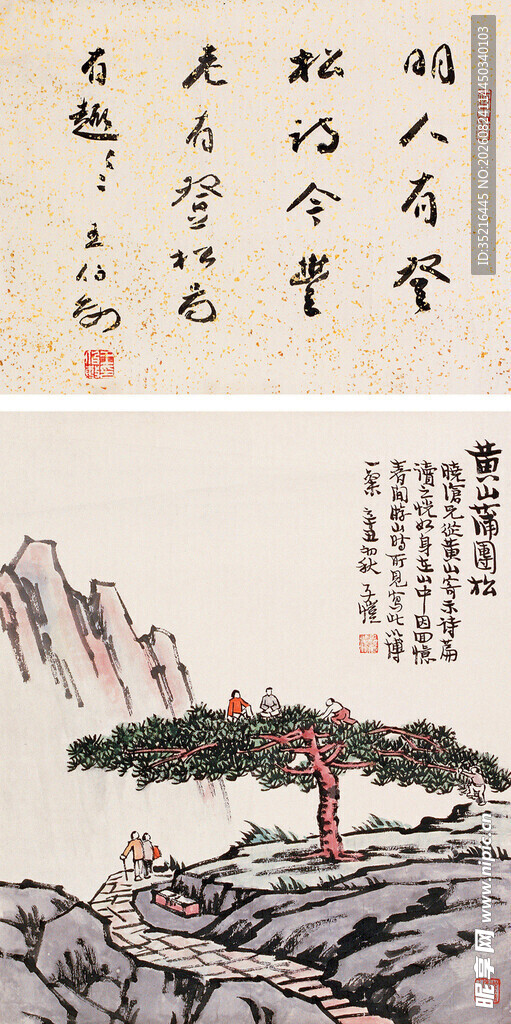 明人有登
松詩今豐
老有登松為
有趣々々 王伯敏
黃山蒲團松
曉滄兄從黃山寄示詩篇
讀之恍如身在山中因回憶
春間游山時所見寫此以博
一粲 辛丑初秋 子愷
ID:35216445 NO:20260824114450340103
昵享网 www.nipic.cn